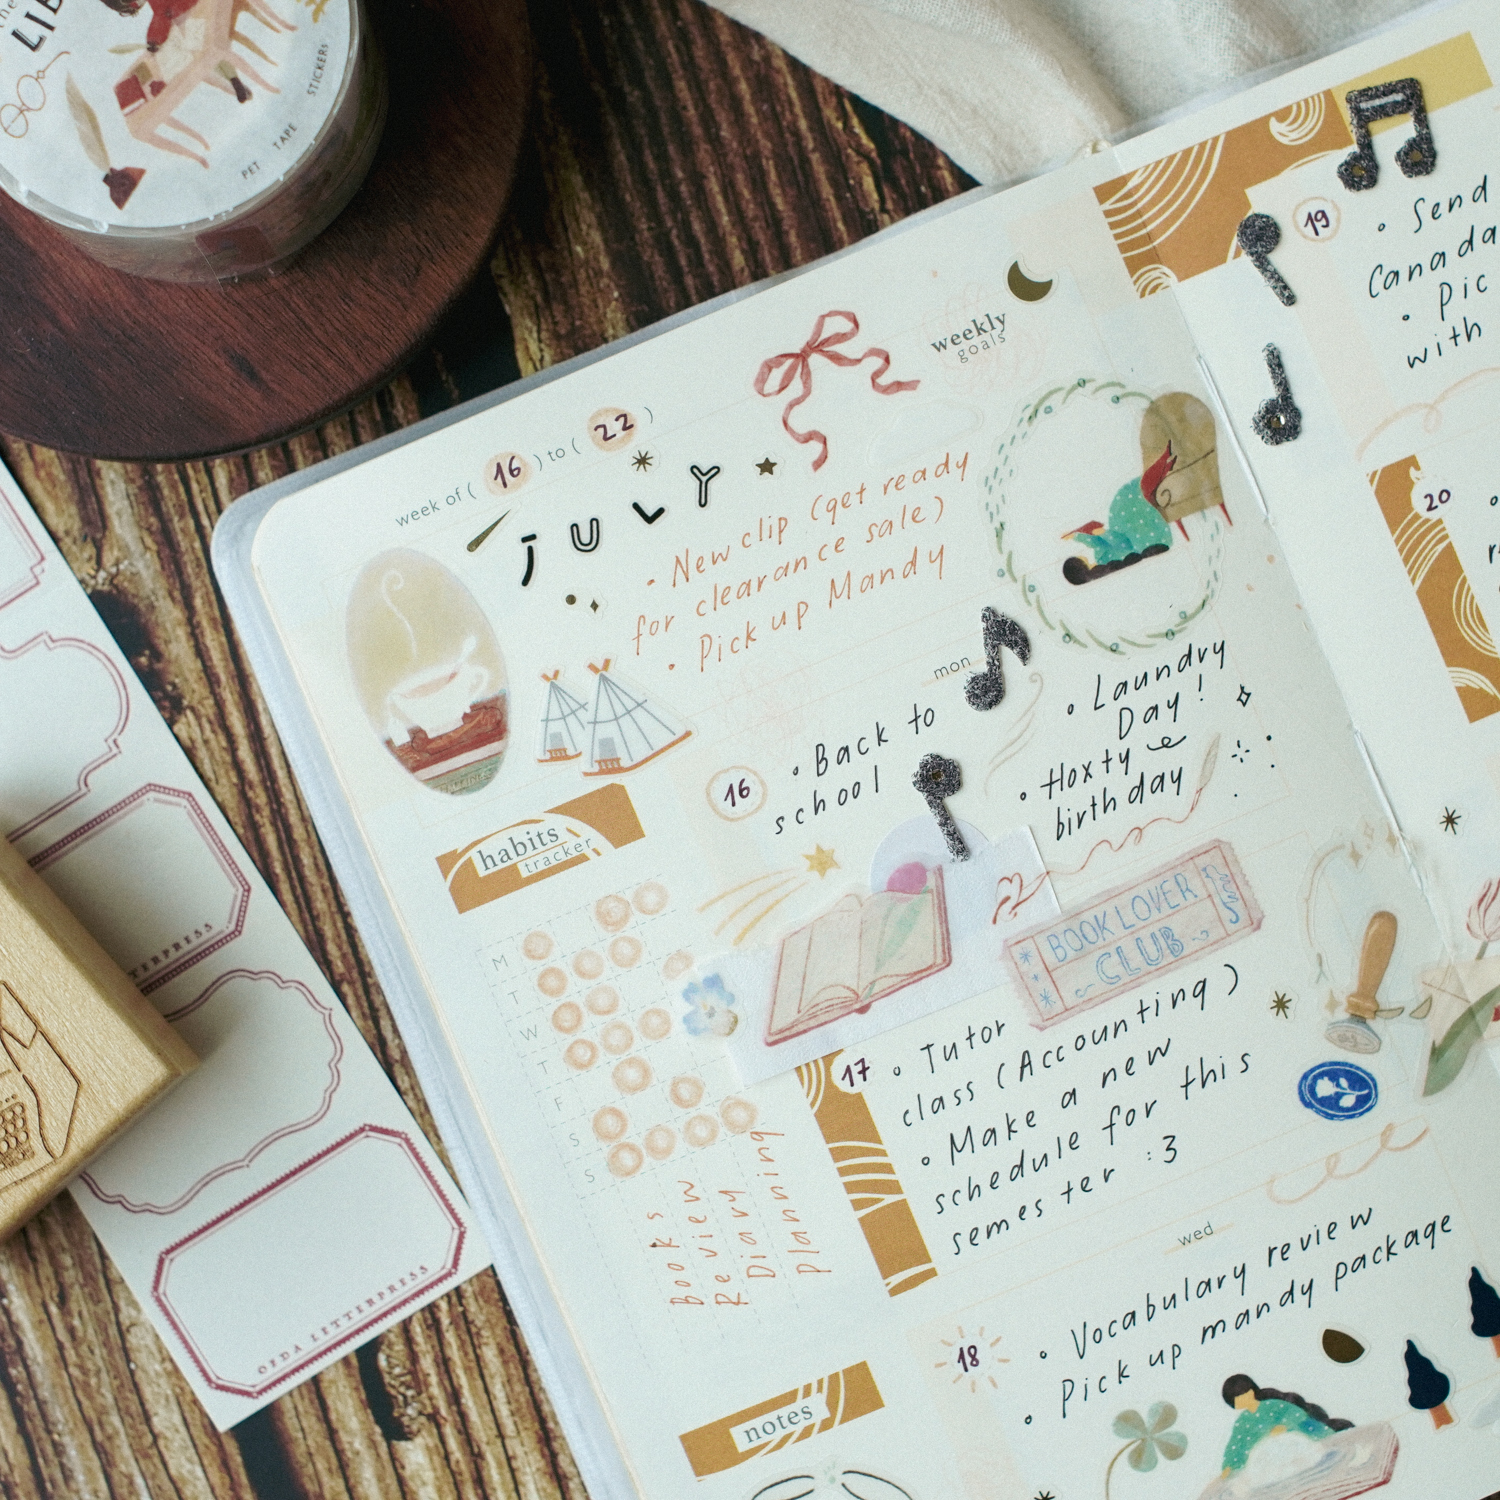 LIB
PET TAPE STICKERS
TERPRESS
OJDA LETTERPRESS
week of ( 16 ) to ( 22 )
JULY
weekly
goals
• New clip (get ready
for clearance sale)
• Pick up Mandy
mon
16
• Back to
school
• Laundry
Day!
• Hoxty
birthday
habits
tracker
M
T
W
T
F
S
S
Books
Review
Diary
Planning
BOOK LOVER
CLUB
17
• Tutor
class (Accounting)
• Make a new
schedule for this
semester :3
wed
18
• Vocabulary review
• Pick up mandy package
notes
19
• Send
Canada
• Pic
with
20